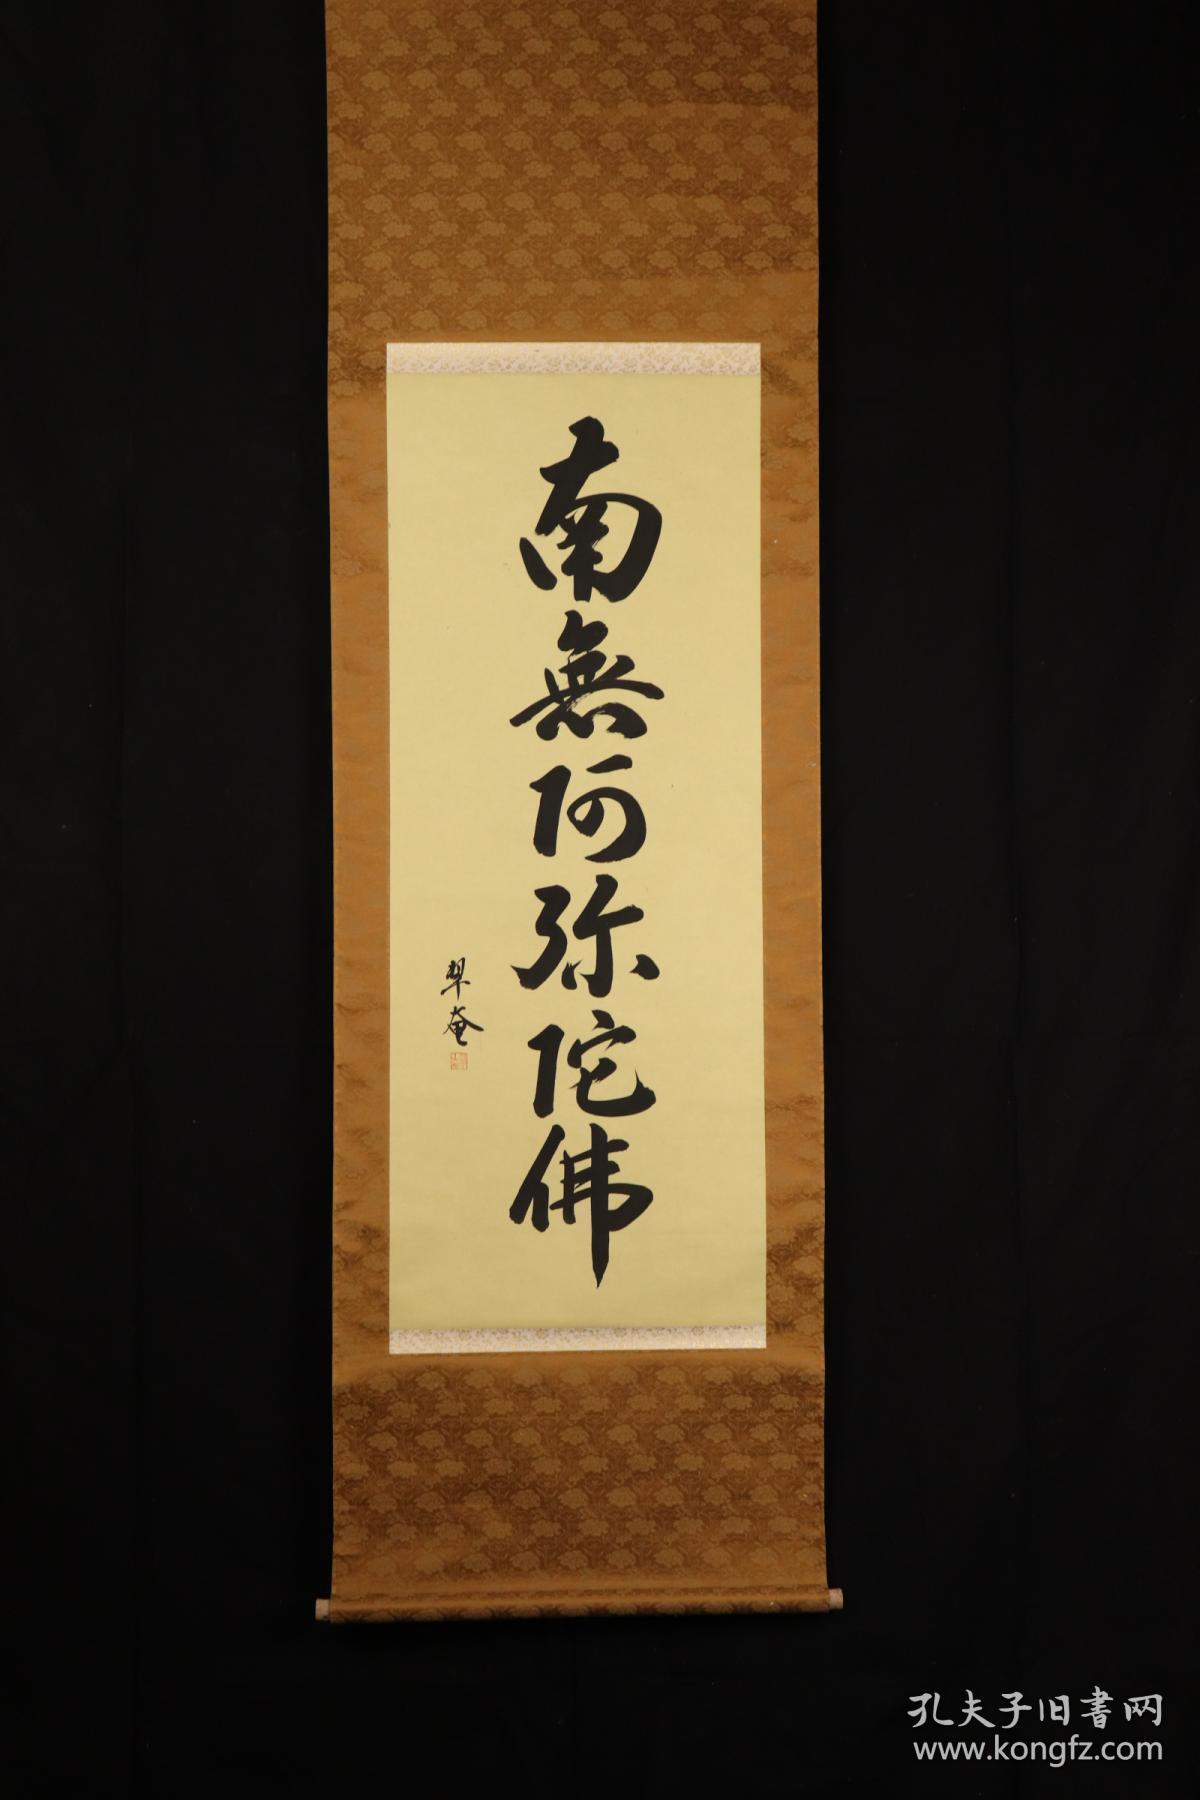 南無阿弥陀佛
翠庵
孔夫子旧書网
www.kongfz.com